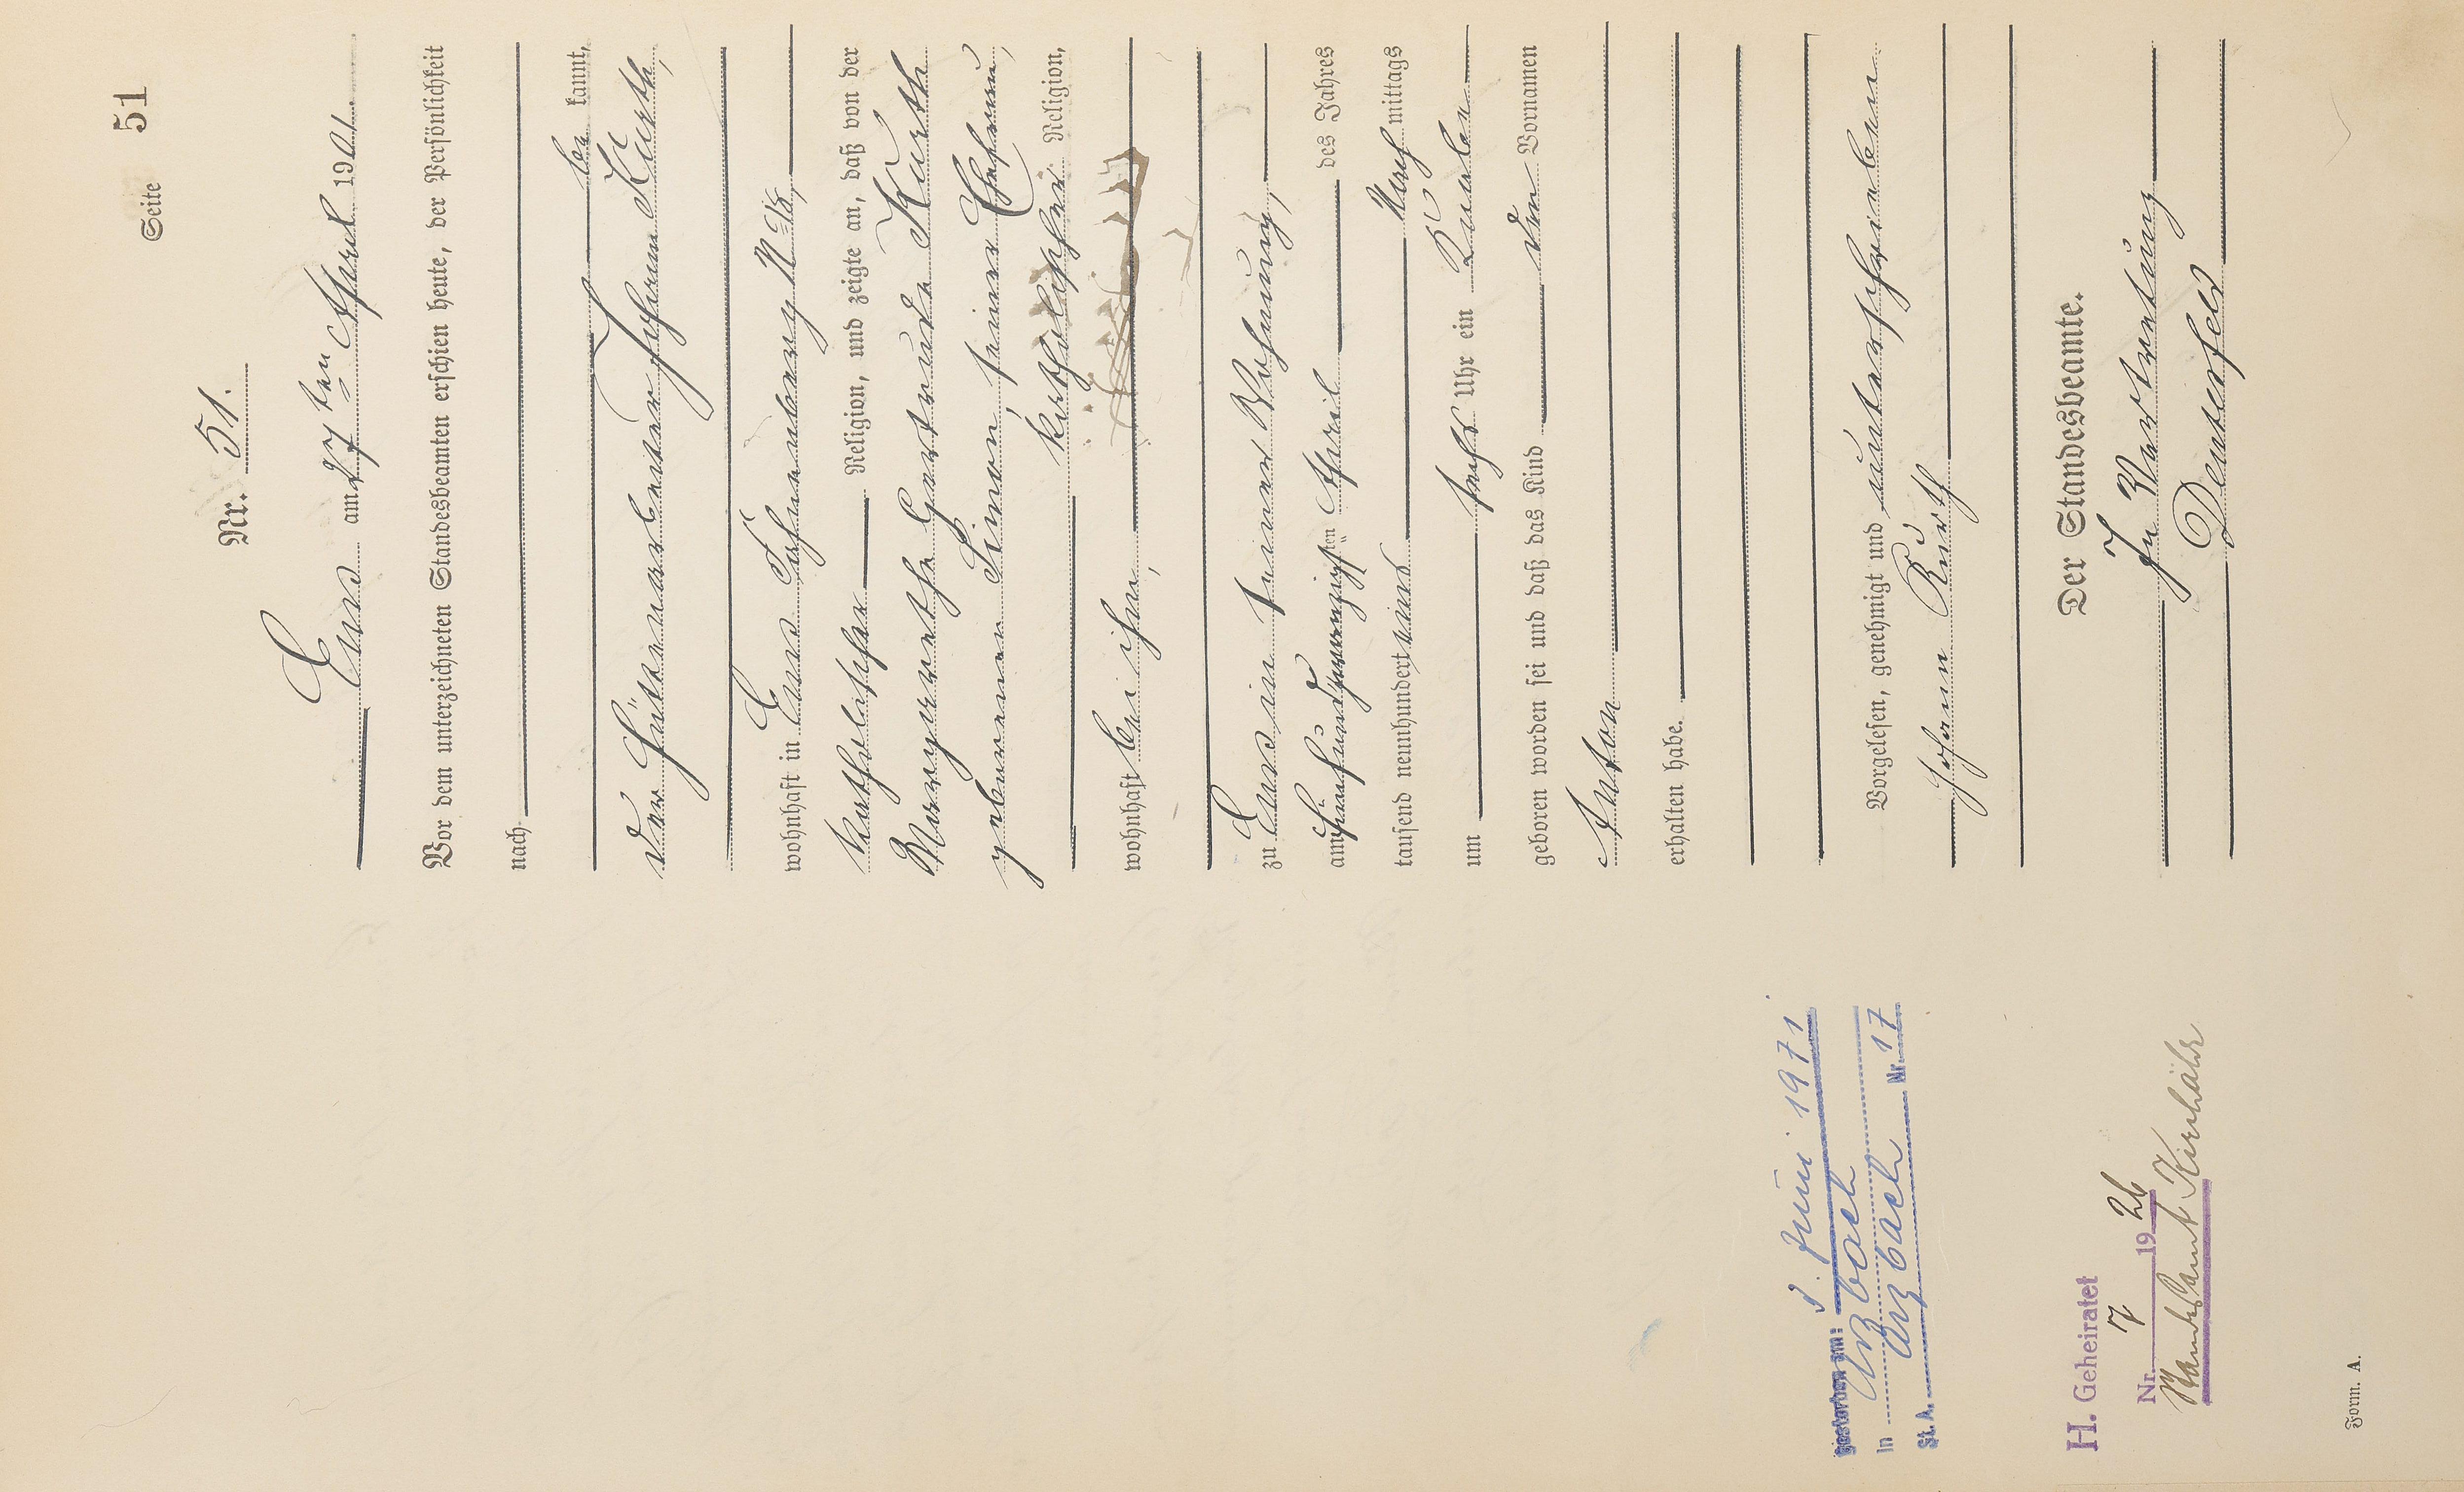 Seite 51
Nr. 51.
Ems am 27ten April 1901.
Vor dem unterzeichneten Standesbeamten erschien heute, der Persönlichkeit
nach
be kannt,
der Hüttenarbeiter Johann Kurth,
wohnhaft in Ems
katholischer Religion, und zeigte an, daß von der
Margarethe Gertrude Kurth
geborenen Simon, seiner Ehefrau,
katholischer Religion,
wohnhaft bei ihm,
zu Ems in seiner Wohnung,
am fünfundzwanzigsten April des Jahres
tausend neunhundert eins Nach mittags
um sechs Uhr ein Knabe
geboren worden sei und daß das Kind den Vornamen
Anton
erhalten habe.
Vorgelesen, genehmigt und unterschrieben
Johann Kurth
Der Standesbeamte.
In Vertretung
gestorben am: 3. Juni 1971
in Arzbach
St. A. Arzbach Nr. 17
H. Geheiratet
Nr. 7 1926
Standesamt Kirchähr
Form. A.